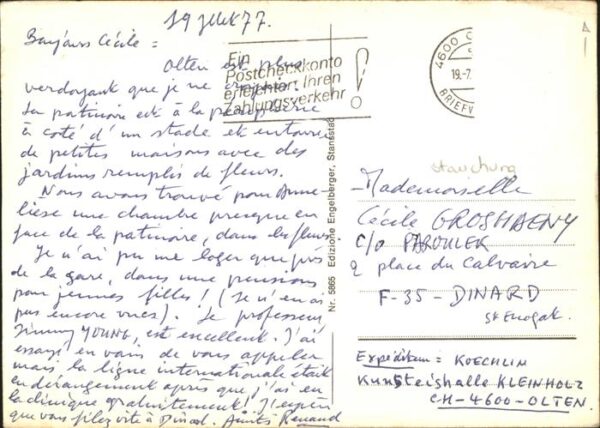 19 juillet 77.
Bonjour Cécile =
Olten est plus
verdoyant que je ne croyais.
La patinoire est à la périphérie
à coté d'un stade et entourée
de petites maisons avec des
jardins remplis de fleurs.
Nous avons trouvé pour Anne-
liese une chambre presque en
face de la patinoire, dans les fleurs
Je n'ai pu me loger que près
de la gare, dans une pension
pour jeunes filles! (Je n'en ai
pas encore vues). Le professeur,
Jimmy YOUNG, est excellent. J'ai
essayé en vain de vous appeler
mais la ligne internationale était
en dérangement après que j'ai eu
la clinique gratuitement! J'espère
que vous filez vite à Dinard. Amitiés Renaud
Ein
Postcheckkonto
erleichtert Ihren
Zahlungsverkehr!
4600 O
19.-7.
BRIEFV
Nr. 5865 Edizione Engelberger, Stansstad
Stauchung
Mademoiselle
Cécile GROSHAENY
C/o PAROULEK
2 place du Calvaire
F-35- DINARD
St Enogat.
Expéditeur = KOECHLIN
Kunsteishalle KLEINHOLZ
CH-4600-OLTEN.